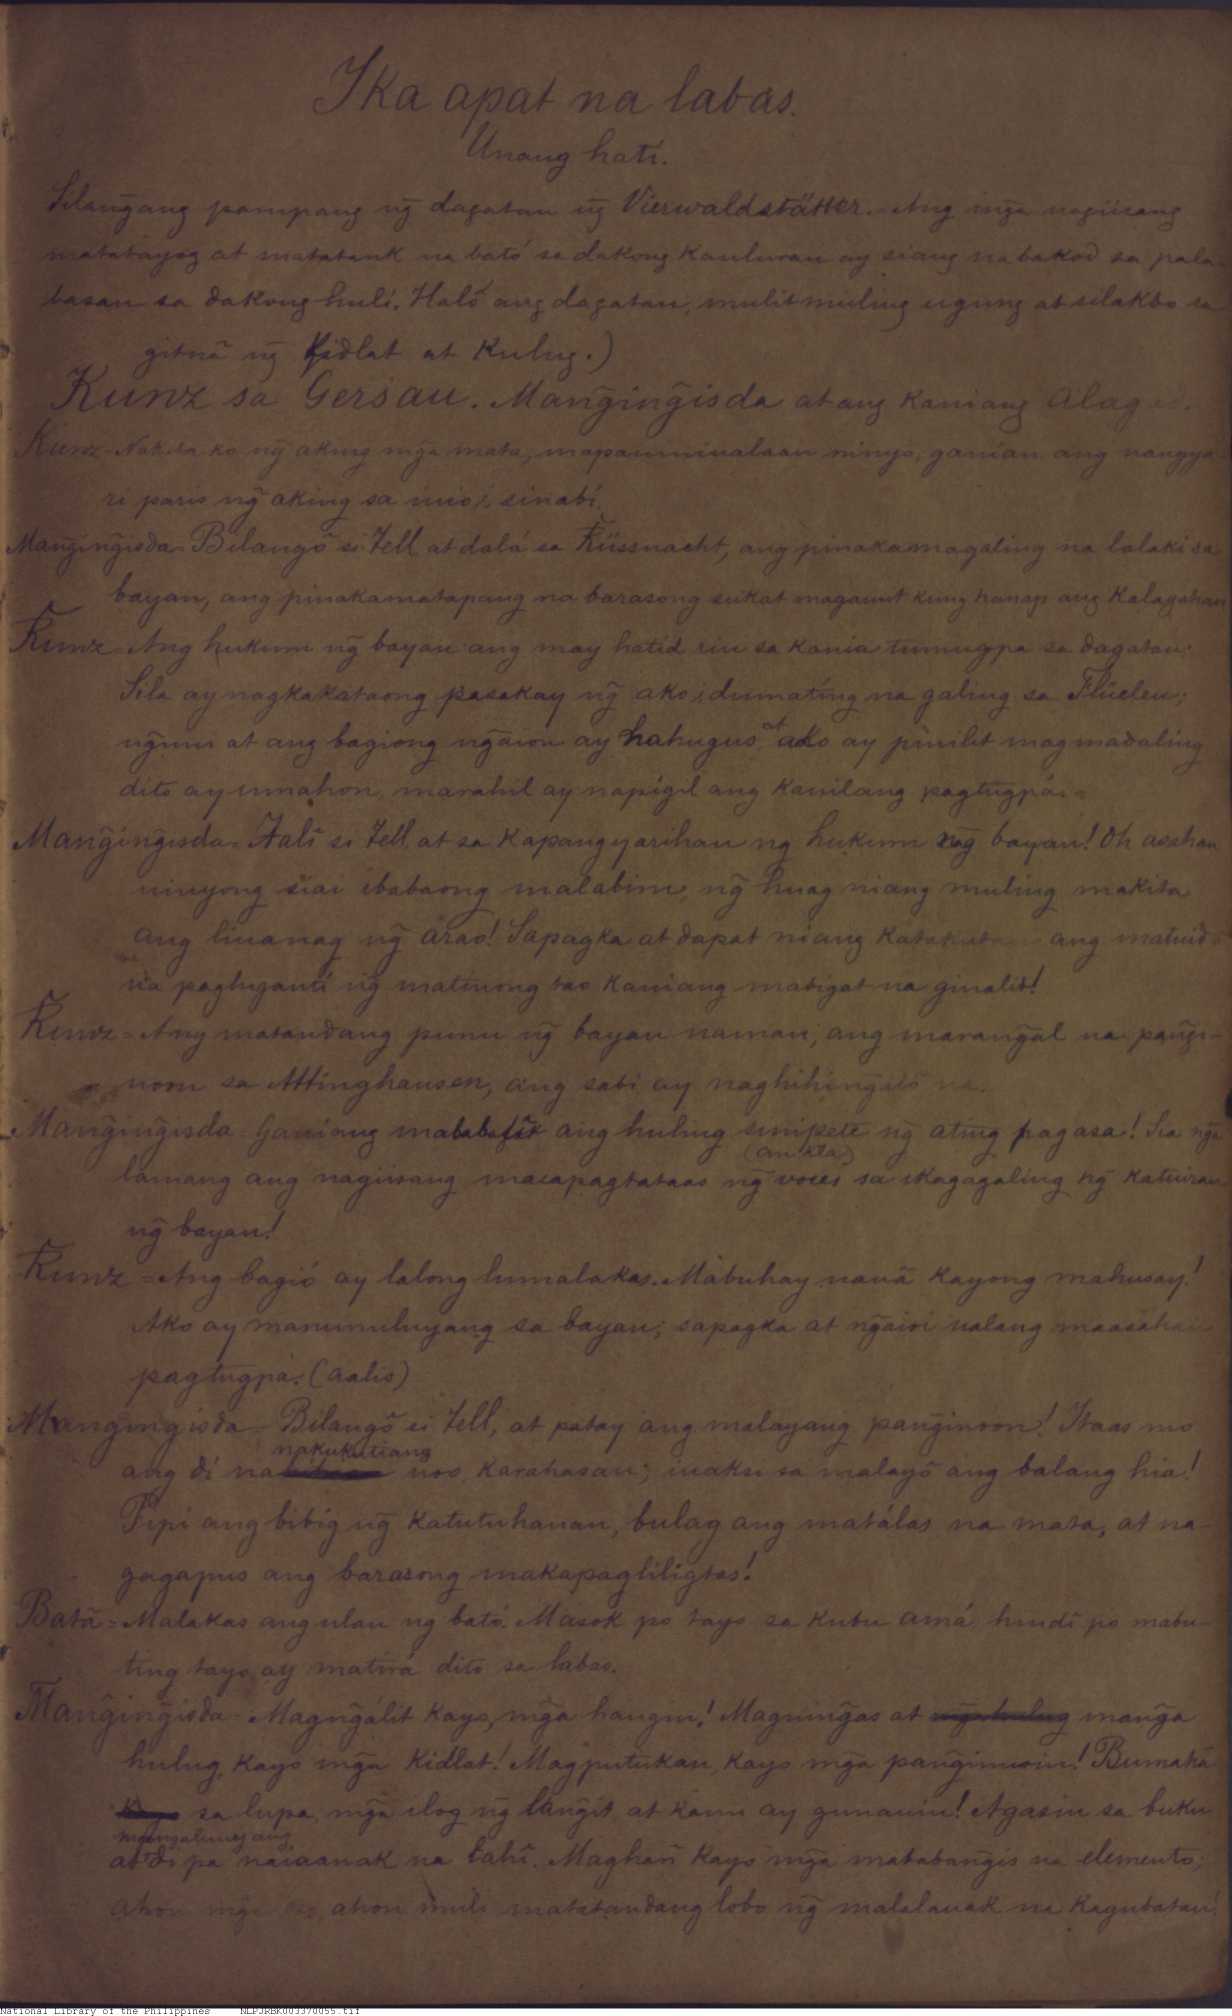 Ika apat na labas.
Unang hati.
Silan͠gang pampang n͠g dagatan n͠g Vierwaldstätter. Ang m͠ga nagiisang
matatayog at matatarik na bató sa dakong kanluran ay siang nabakod sa pala-
basan sa dakong huli. Haló ang dagatan, mulit muling ugung at silakbo sa
gitnã n͠g kidlat at kulug.)
Kunz sa Gersau. Man͠gin͠gisda at ang kaniang alagad.
Kunz - Nakita ko n͠g aking m͠ga mata, mapaniniualaan ninyo; ganian ang nangya-
ri paris n͠g aking sa inio'i, sinabi.
Man͠gin͠gisda - Bilangõ si Tell at dalá sa Küssnacht, ang pinakamagaling na lalaki sa
bayan, ang pinakamatapang na barasong sukat magamit kung hanap ang Kalayahan
Kunz - Ang hukum n͠g bayan ang may hatid rin sa kania tumugpa sa dagatan:
Sila ay nagkakataong pasakay n͠g ako'i, dumating na galing sa Flüelen;
n͠guni at ang bagiong n͠gaion ay hahugus, at ako ay pinilit magmadaling
dito ay umahon, marahil ay napigil ang kanilang pagtugpá.
Man͠gin͠gisda = Tali si Tell at sa kapangyarihan ng hukum n͠g bayan! Oh asahan
ninyong siai ibabaong malalim, n͠g huag niang muling makita
ang liuanag n͠g arao! Sapagka at dapat niang katakutan ang matuid
na paghiganti n͠g matinong tao kaniang matigat na ginalit!
Kunz = Ang matandang punu n͠g bayan naman, ang maran͠gal na pan͠gi-
noon sa Attinghausen, ang sabi ay naghihin͠galõ na.
Man͠gin͠gisda - Ganiang mababalĩ ang huling sinipete n͠g ating pagasa! Sia n͠ga
(ankla)
lamang ang nagiisang macapagtataas n͠g voces sa ikagagaling n͠g katuiran
n͠g bayan!
Kunz = Ang bagió ay lalong lumalakas. Mabuhay nauã kayong mahusay!
Ako ay manunuluyang sa bayan; sapagka at n͠gaioi ualang maasahan
pagtugpá. (aalis)
Mangingisda - Bilangõ si Tell, at patay ang malayang pan͠ginoon! Itaas mo
nakukutiang
ang di na noo, karahasan; iuaksi sa malayõ ang balang hia!
Pipi ang bibig n͠g katutuhanan, bulag ang matálas na mata, at na-
gagapus ang barasong makapagliligtas!
Batã = Malakas ang ulan ng bató. Masok po tayo sa kubu amá, hindĩ po mabu-
ting tayo ay matirá dito sa labas.
Man͠gin͠gisda - Magn͠gálit kayo, m͠ga hangin! Magnin͠gas at m͠ga hulug man͠ga
hulug, kayo m͠ga kidlat! Magputukan kayo m͠ga pan͠ginuoin! Bumahã
kayo sa lupa, m͠ga ilog n͠g lan͠git, at kami ay gunauin! Agasin sa buku
mangatuny ang
at di pa naiaanak na lahĩ. Maghari kayo m͠ga mababan͠gis na elemento;
ahon m͠ga oso, ahon muli matatandang lobo n͠g malalauak na kagubatan!
National Library of the Philippines NLPJRBK003370055.tif